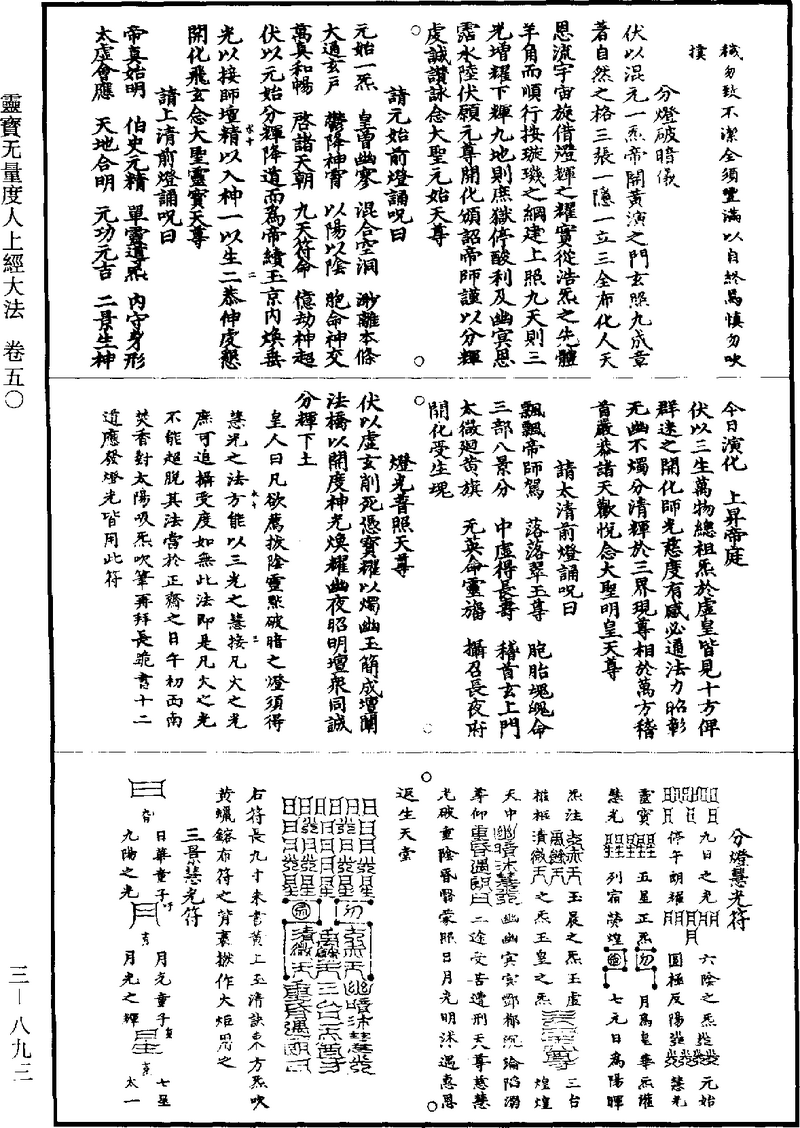 靈寶无量度人上經大法 卷五〇
三—八九三
穢勿致不潔全須豐滿以自終為慎勿吹
撲
分燈破暗儀
伏以混元一炁帝開黃演之門玄照九成章
著自然之格三張一隱一立三全布化人天
恩流宇宙旋借澄輝之耀實從浩炁之先體
羊角而順行按璇璣之綱建上照九天則三
光增耀下輝九地則庶獄停酸利及幽冥恩
霑水陸伏願元尊開化頒詔帝師謹以分輝
虔誠讚詠念大聖元始天尊
請元始前燈誦呪曰
元始一炁 皇曾幽寥 混合空洞 渺離本條
大通玄戶 鬱降神霄 以陽以陰 胞命神交
萬真和暢 啓諸天朝 九天符命 億劫神超
伏以元始分輝降道而爲帝續玉京內煥垂
光以接師壇精以入神一以生二恭伸虔懇
開化飛玄念大聖靈寶天尊
請上清前燈誦呪曰
帝真始明 伯史元精 單靈遵炁 內守身形
太虛會應 天地合明 元功元吉 二景生神
今日演化 上昇帝庭
伏以三生萬物總祖炁於虛皇皆見十方俾
群迷之開化師光慈度有感必通法力昭彰
无幽不燭分清輝於三界現尊相於萬方稽
首嚴恭諸天歡悅念大聖明皇天尊
請太清前燈誦呪曰
飄飄帝師駕 落落翠玉尊 胞胎塊塊命
三部八景分 中虛得長壽 稽首玄上門
太微迴黃旗 元英命靈旛 攝召長夜府
開化受生魂
燈光普照天尊
伏以虛玄削死憑寶耀以燭幽玉簡成壇闡
法橋以開度神光煥耀幽夜昭明壇衆同誠
分輝下土
皇人曰凡欲薦拔陰靈點破暗之燈須得
慧光之法方能以三光之慧接凡火之光
庶可追攝受度如無此法即是凡火之光
不能超脫其法當於正齋之日午初面南
焚香對太陽吸炁吹筆再拜長跪書十二
道應發燈光皆用此符
分燈慧光符
九日之光 六陰之炁 元始
停午朗耀 圓極反陽 慧光
靈寶 五星正炁 月為皇華炁權
慧光 列宿熒煌 七元日為陽暉
炁注 玉晨之炁玉虛 三台
樞極清微 之炁玉皇之炁 煌煌
天中 幽幽冥冥酆都沉淪陷溺
尊仰 二途受苦遭刑天尊慈慧
光破重陰昏翳蒙眼日月光明沐遇惠恩
返生天堂
右符長九寸朱書黃上玉清訣東方炁吹
黃蠟鎔布符之背裹撚作火炬用之
三景慧光符
日華童子 月光童子 七星
九陽之光 月光之輝 太一